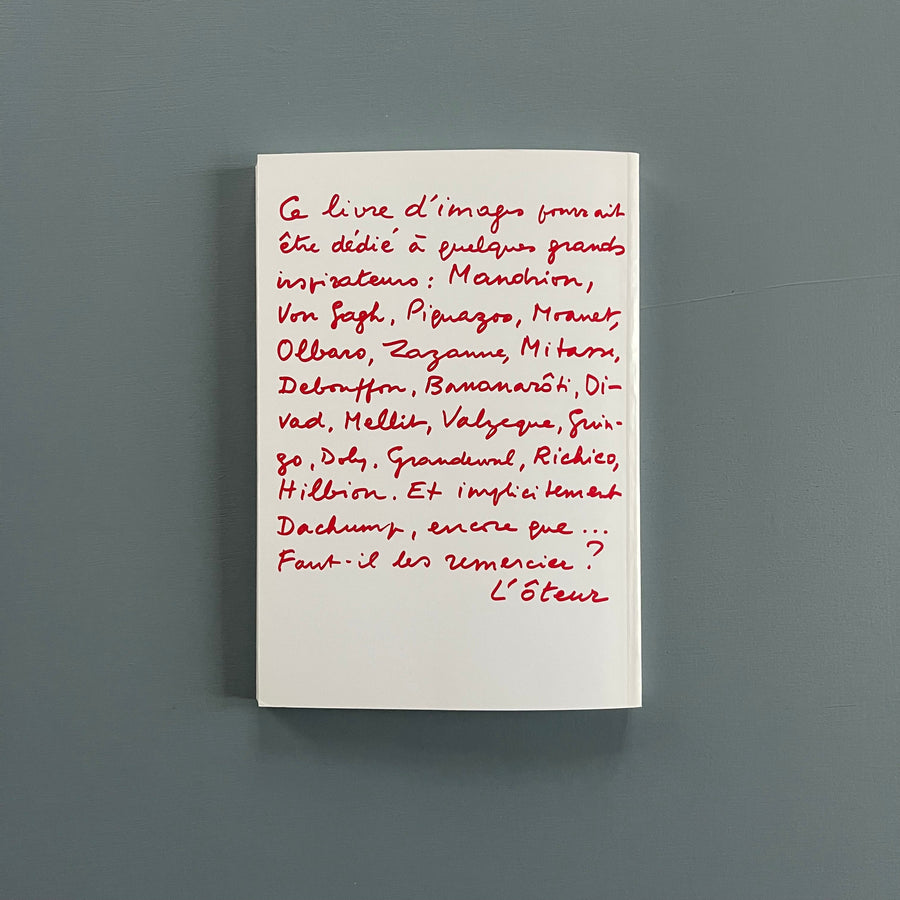 Ce livre d'images pourrait
être dédié à quelques grands
inspirateurs : Mandrion,
Von Gagh, Piquazoo, Moanet,
Olbaro, Zazanne, Mitasse,
Debouffon, Bananarôti, Di-
vad, Mellit, Valzeque, Grin-
go, Doly, Grandewal, Richico,
Hilbion. Et implicitement
Dachump, encore que ...
Faut-il les remercier ?
L'ôteur